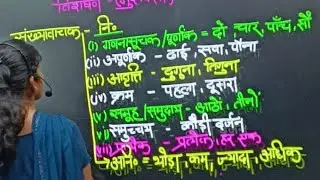 संख्यावाचक - नि०
(i) गणनासूचक/पूर्णांक = दो, चार, पाँच, सौ
(ii) अपूर्णांक - ढाई, सवा, पौना
(iii) आवृति - दुगुना, तिगुना
(iv) क्रम - पहला, दूसरा
(v) समूह/समुदाय - आठों, तीनों
(vi) समुच्चय - कौड़ी दर्जन
(vii) प्रत्येक - प्रत्येक, हर एक
अनि० = थोड़ा, कम, ज्यादा, अधिक